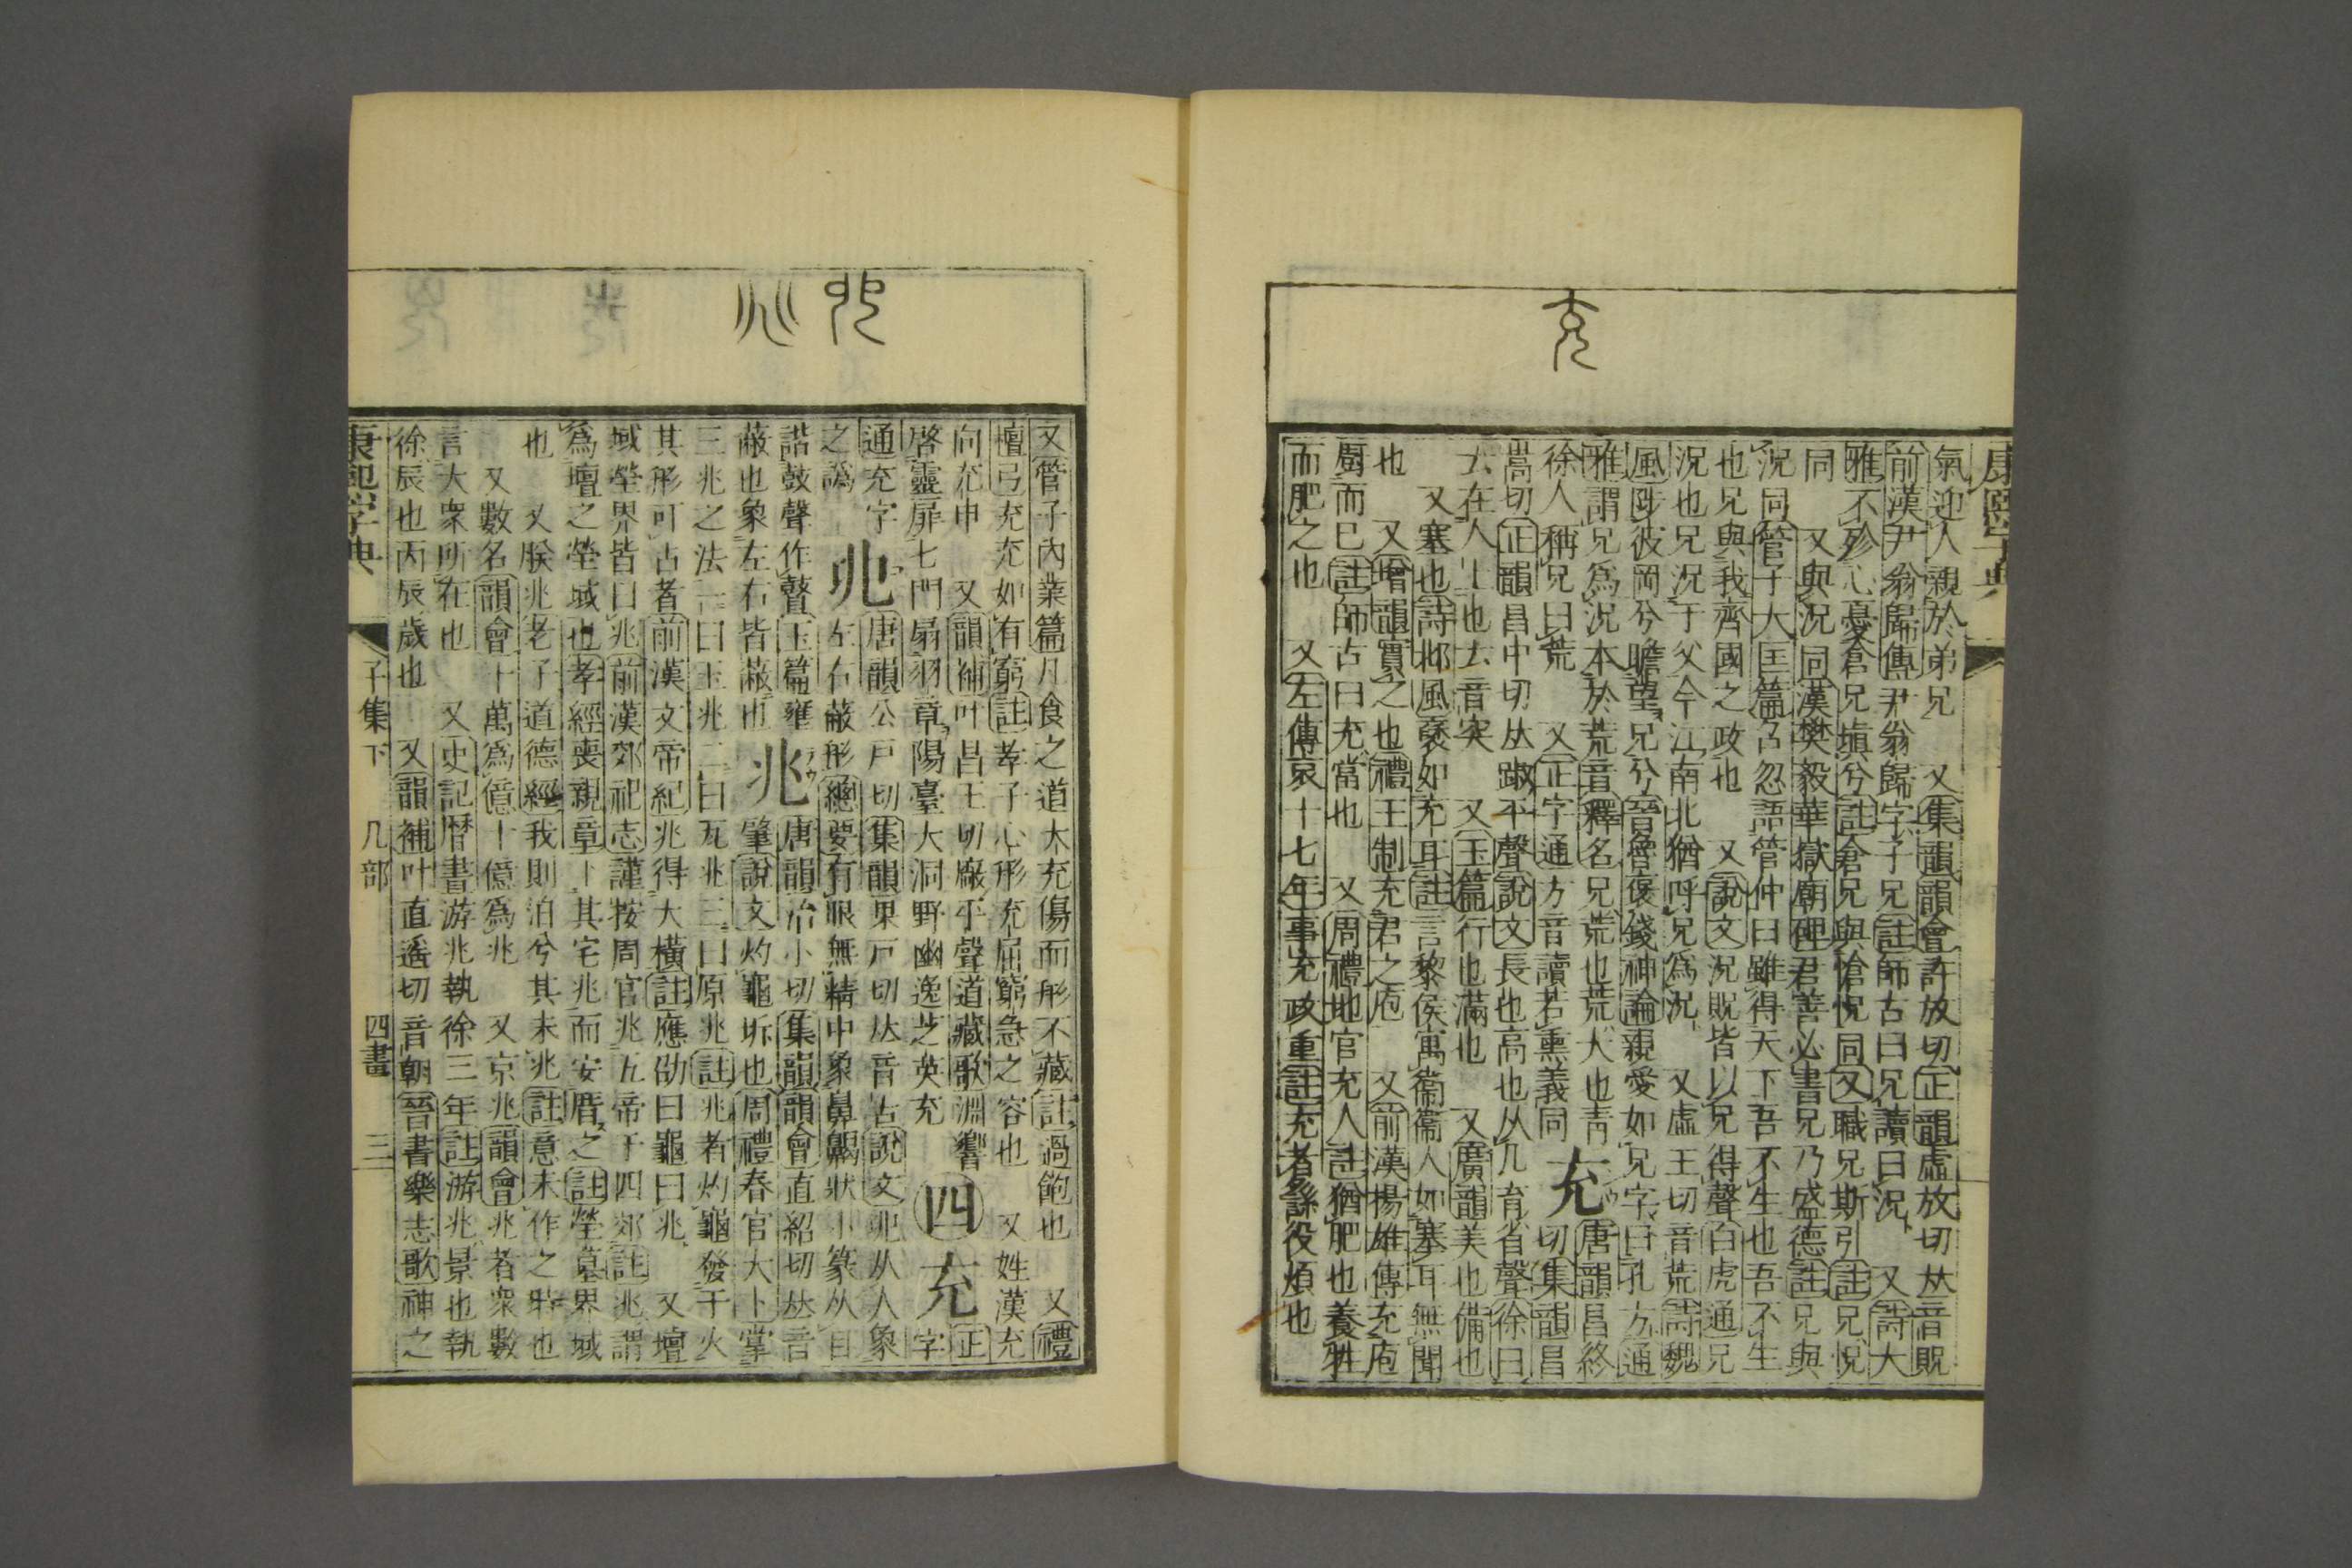 康熙字典
氣迎人親於弟兄　又集韻韻會許放切正韻虛放切𠀤音貺
前漢尹翁歸傳尹翁歸字子兄註師古曰兄讀曰況　又詩大
雅不殄心憂倉兄塡兮註倉兄與愴怳同又職兄斯引註兄怳
同　又與況同漢樊毅華嶽廟碑君善必書兄乃盛德註兄與
況同管子大匡篇召忽語管仲曰雖得天下吾不生也吾不生
也兄與我齊國之政也　又說文況貺皆以兄得聲白虎通兄
況也兄況于父今江南北猶呼兄爲況　又虛王切音荒詩魏
風陟彼岡兮瞻望兄兮晉魯褒錢神論親愛如兄字曰孔方通
雅謂兄爲況本於荒音釋名兄荒也荒大也靑
徐人稱兄曰荒　又正字通方音讀若熏義同
充
唐韻昌終切集韻昌
嵩切正韻昌中切𠀤踧平聲說文長也高也从儿育省聲徐曰
𠫓在人上也𠫓音突　又玉篇行也滿也　又廣韻美也備也
又塞也詩邶風褎如充耳註言黎侯寓衞衞人如塞耳無聞
也　又增韻實之也禮王制充君之庖　又前漢揚雄傳充庖
廚而已註師古曰充當也　又周禮地官充人註猶肥也養牲
而肥之也　又左傳哀十七年事充政重註充者繇役煩也
又管子內業篇凡食之道大充傷而形不藏註過飽也　又禮
檀弓充充如有窮註孝子心形充屈窮急之容也　又姓漢充
向充申　又韻補叶昌王切廠平聲道藏歌淵響
啓靈扉七門扇羽章陽臺大洞野幽逸芝英充
四
充
正字
通充字
之譌
兆
唐韻公戸切集韻果戸切𠀤音古說文兆从人象
左右蔽形總要有眼無精中象鼻齃狀小篆从目
諎鼓聲作瞽玉篇壅
蔽也象左右皆蔽也
兆
唐韻治小切集韻韻會直紹切𠀤音
肇說文灼龜坼也周禮春官大卜掌
三兆之法一曰玉兆二曰瓦兆三曰原兆註兆者灼龜發于火
其形可占者前漢文帝紀兆得大橫註應劭曰龜曰兆　又壇
域塋界皆曰兆前漢郊祀志謹按周官兆五帝于四郊註兆謂
爲壇之塋域也孝經喪親章卜其宅兆而安厝之註塋墓界域
也　又朕兆老子道德經我則泊兮其未兆註意未作之時也
又數名韻會十萬爲億十億爲兆　又京兆韻會兆者衆數
言大衆所在也　又史記曆書游兆執徐三年註游兆景也執
徐辰也丙辰歲也　又韻補叶直遙切音朝晉書樂志歌神之
康熙字典　子集下　儿部　四畫　三